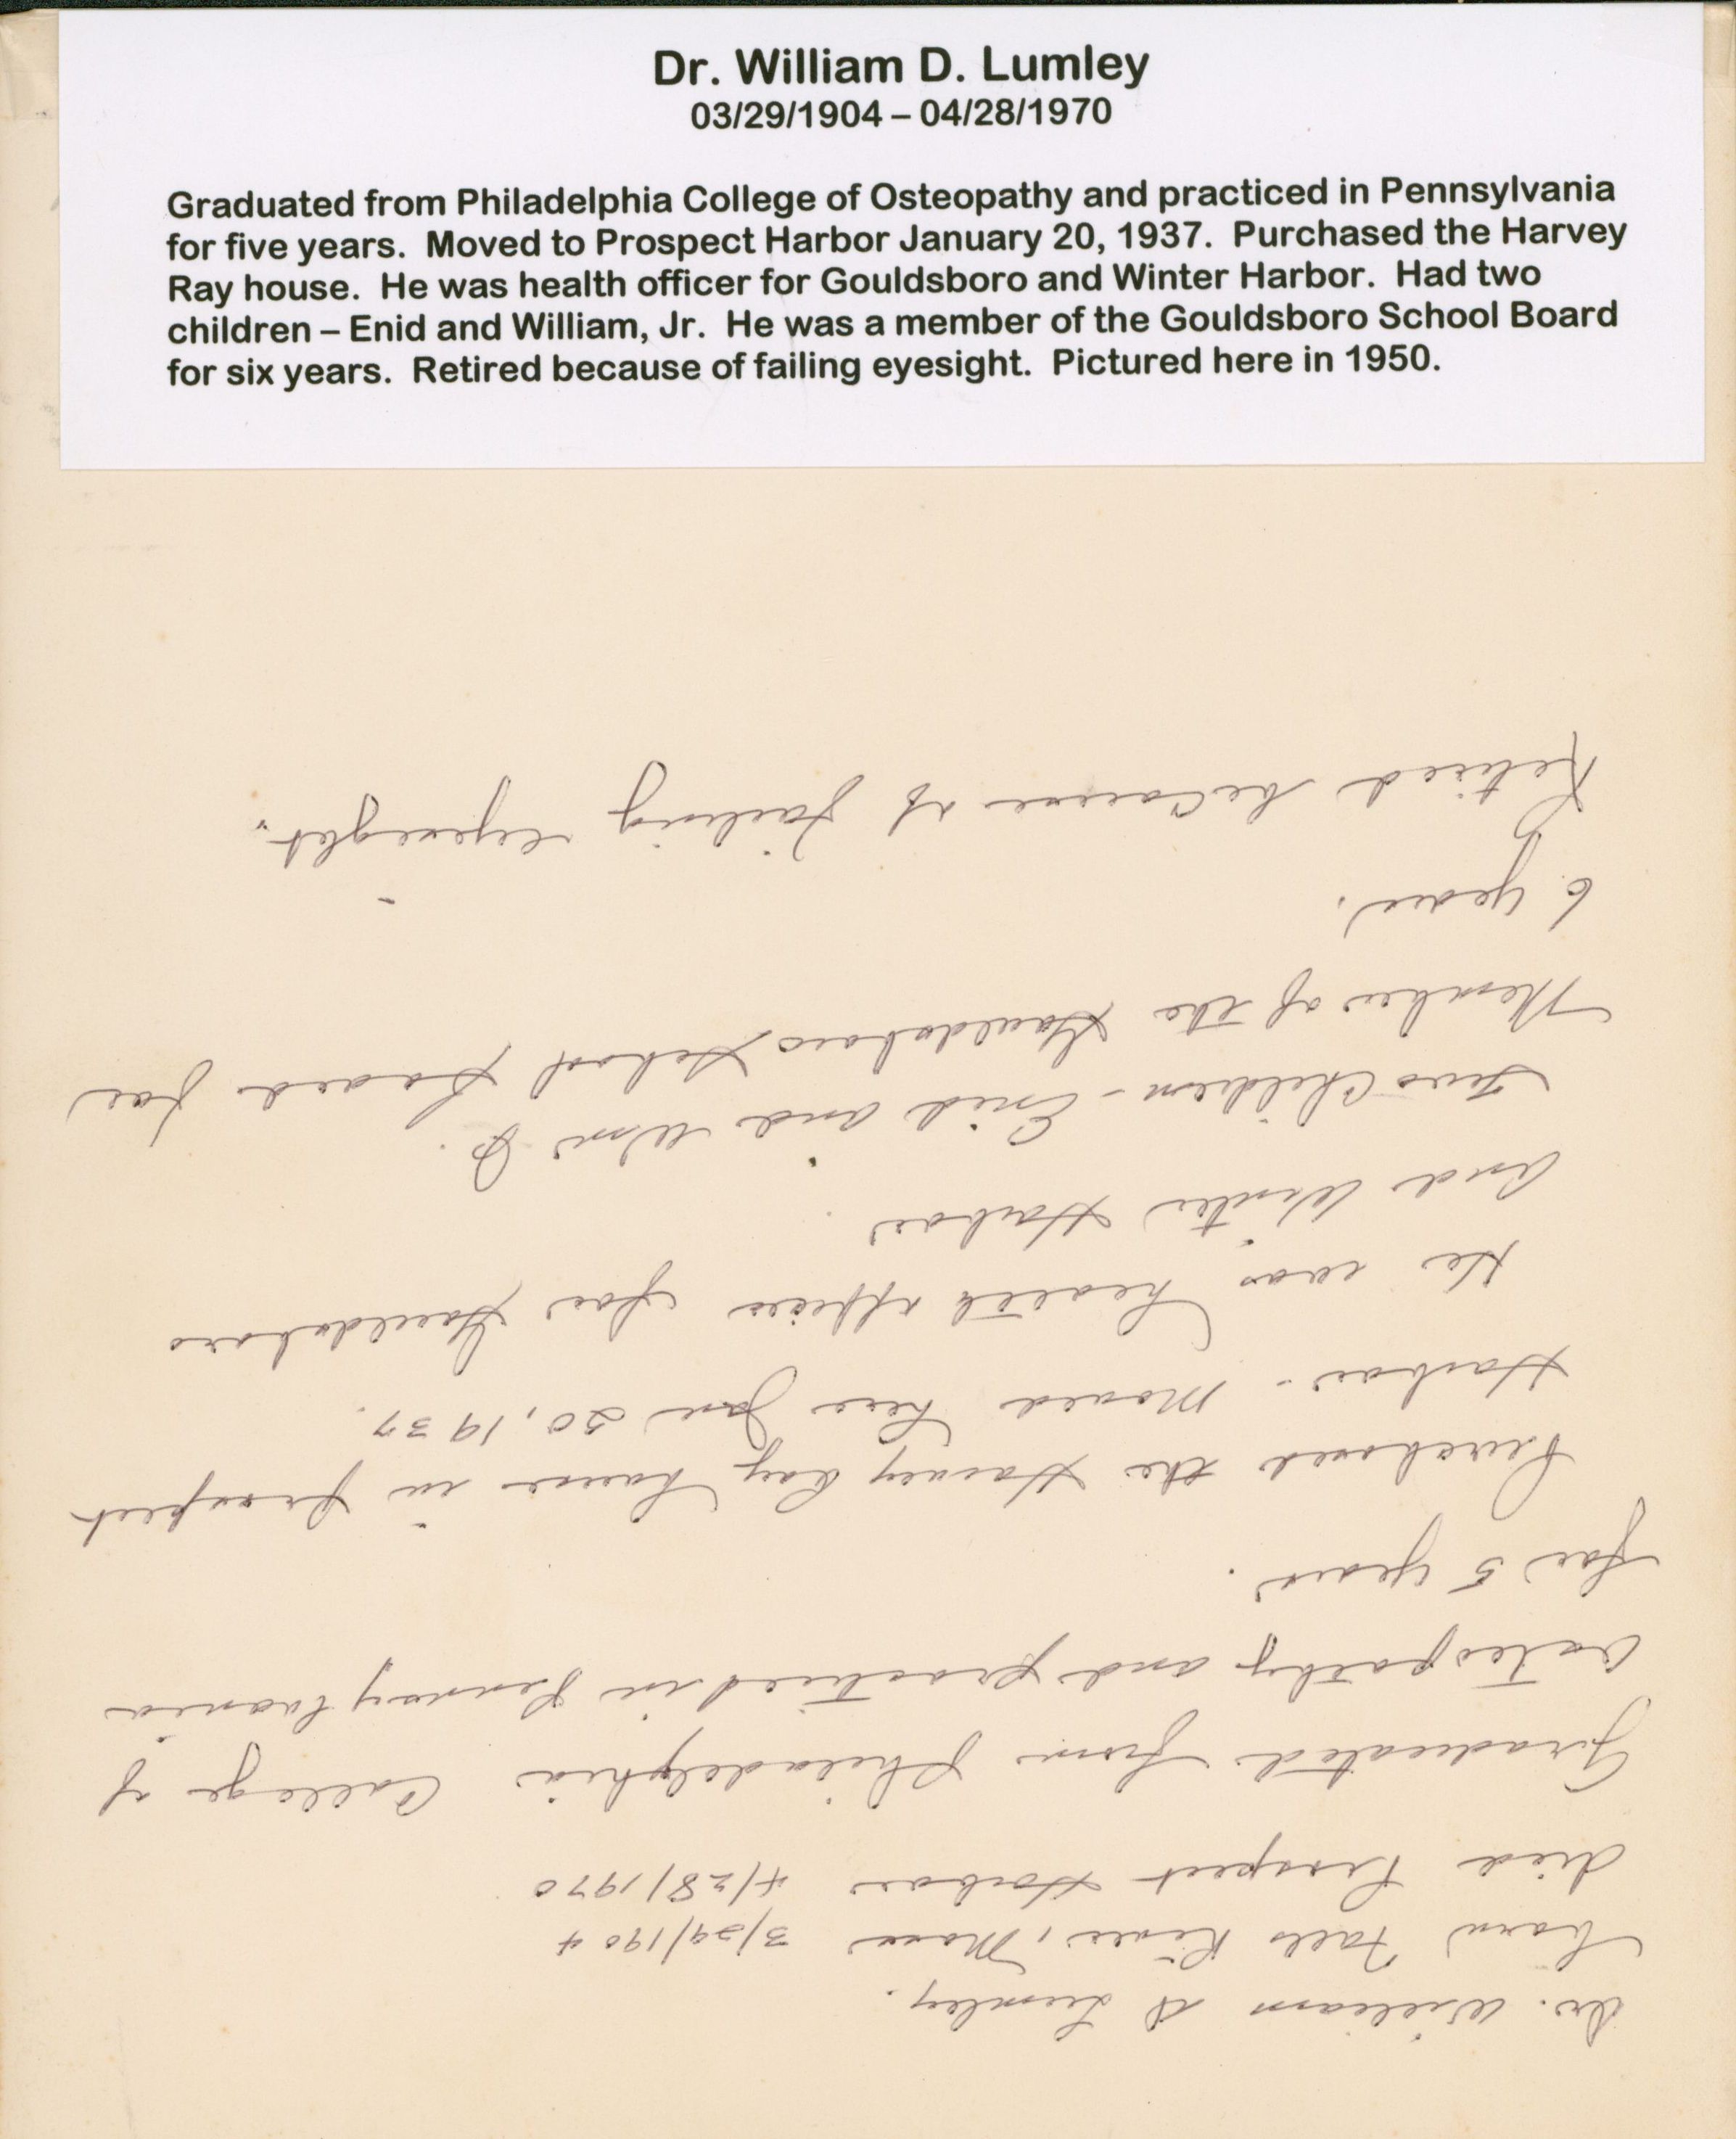 Dr. William D. Lumley
03/29/1904 – 04/28/1970
Graduated from Philadelphia College of Osteopathy and practiced in Pennsylvania
for five years. Moved to Prospect Harbor January 20, 1937. Purchased the Harvey
Ray house. He was health officer for Gouldsboro and Winter Harbor. Had two
children – Enid and William, Jr. He was a member of the Gouldsboro School Board
for six years. Retired because of failing eyesight. Pictured here in 1950.
Dr. William D Lumley.
born Fall River, Mass 3/29/1904
died Prospect Harbor 4/28/1970
Graduated from Philadelphia College of
Osteopathy and practiced in Pennsylvania
for 5 years.
Purchased the Harvey Ray house in Prospect
Harbor. Moved here Jan 20, 1937.
He was health officer for Gouldsboro
and Winter Harbor
Two Children - Enid and Wm Jr.
Member of the Gouldsboro School Board for
6 years.
Retired because of failing eyesight.